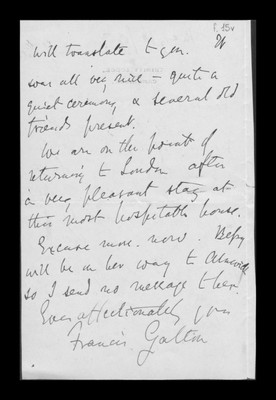 f. 15v
will translate to you. It
was all very nice – quite a
quiet ceremony & several old
friends present.
We are on the point of
returning to London after
a very pleasant stay at
this most hospitable house.
Excuse more now. Bessy
will be on her way to
so I send no message to her.
Ever affectionately yours
Francis Galton